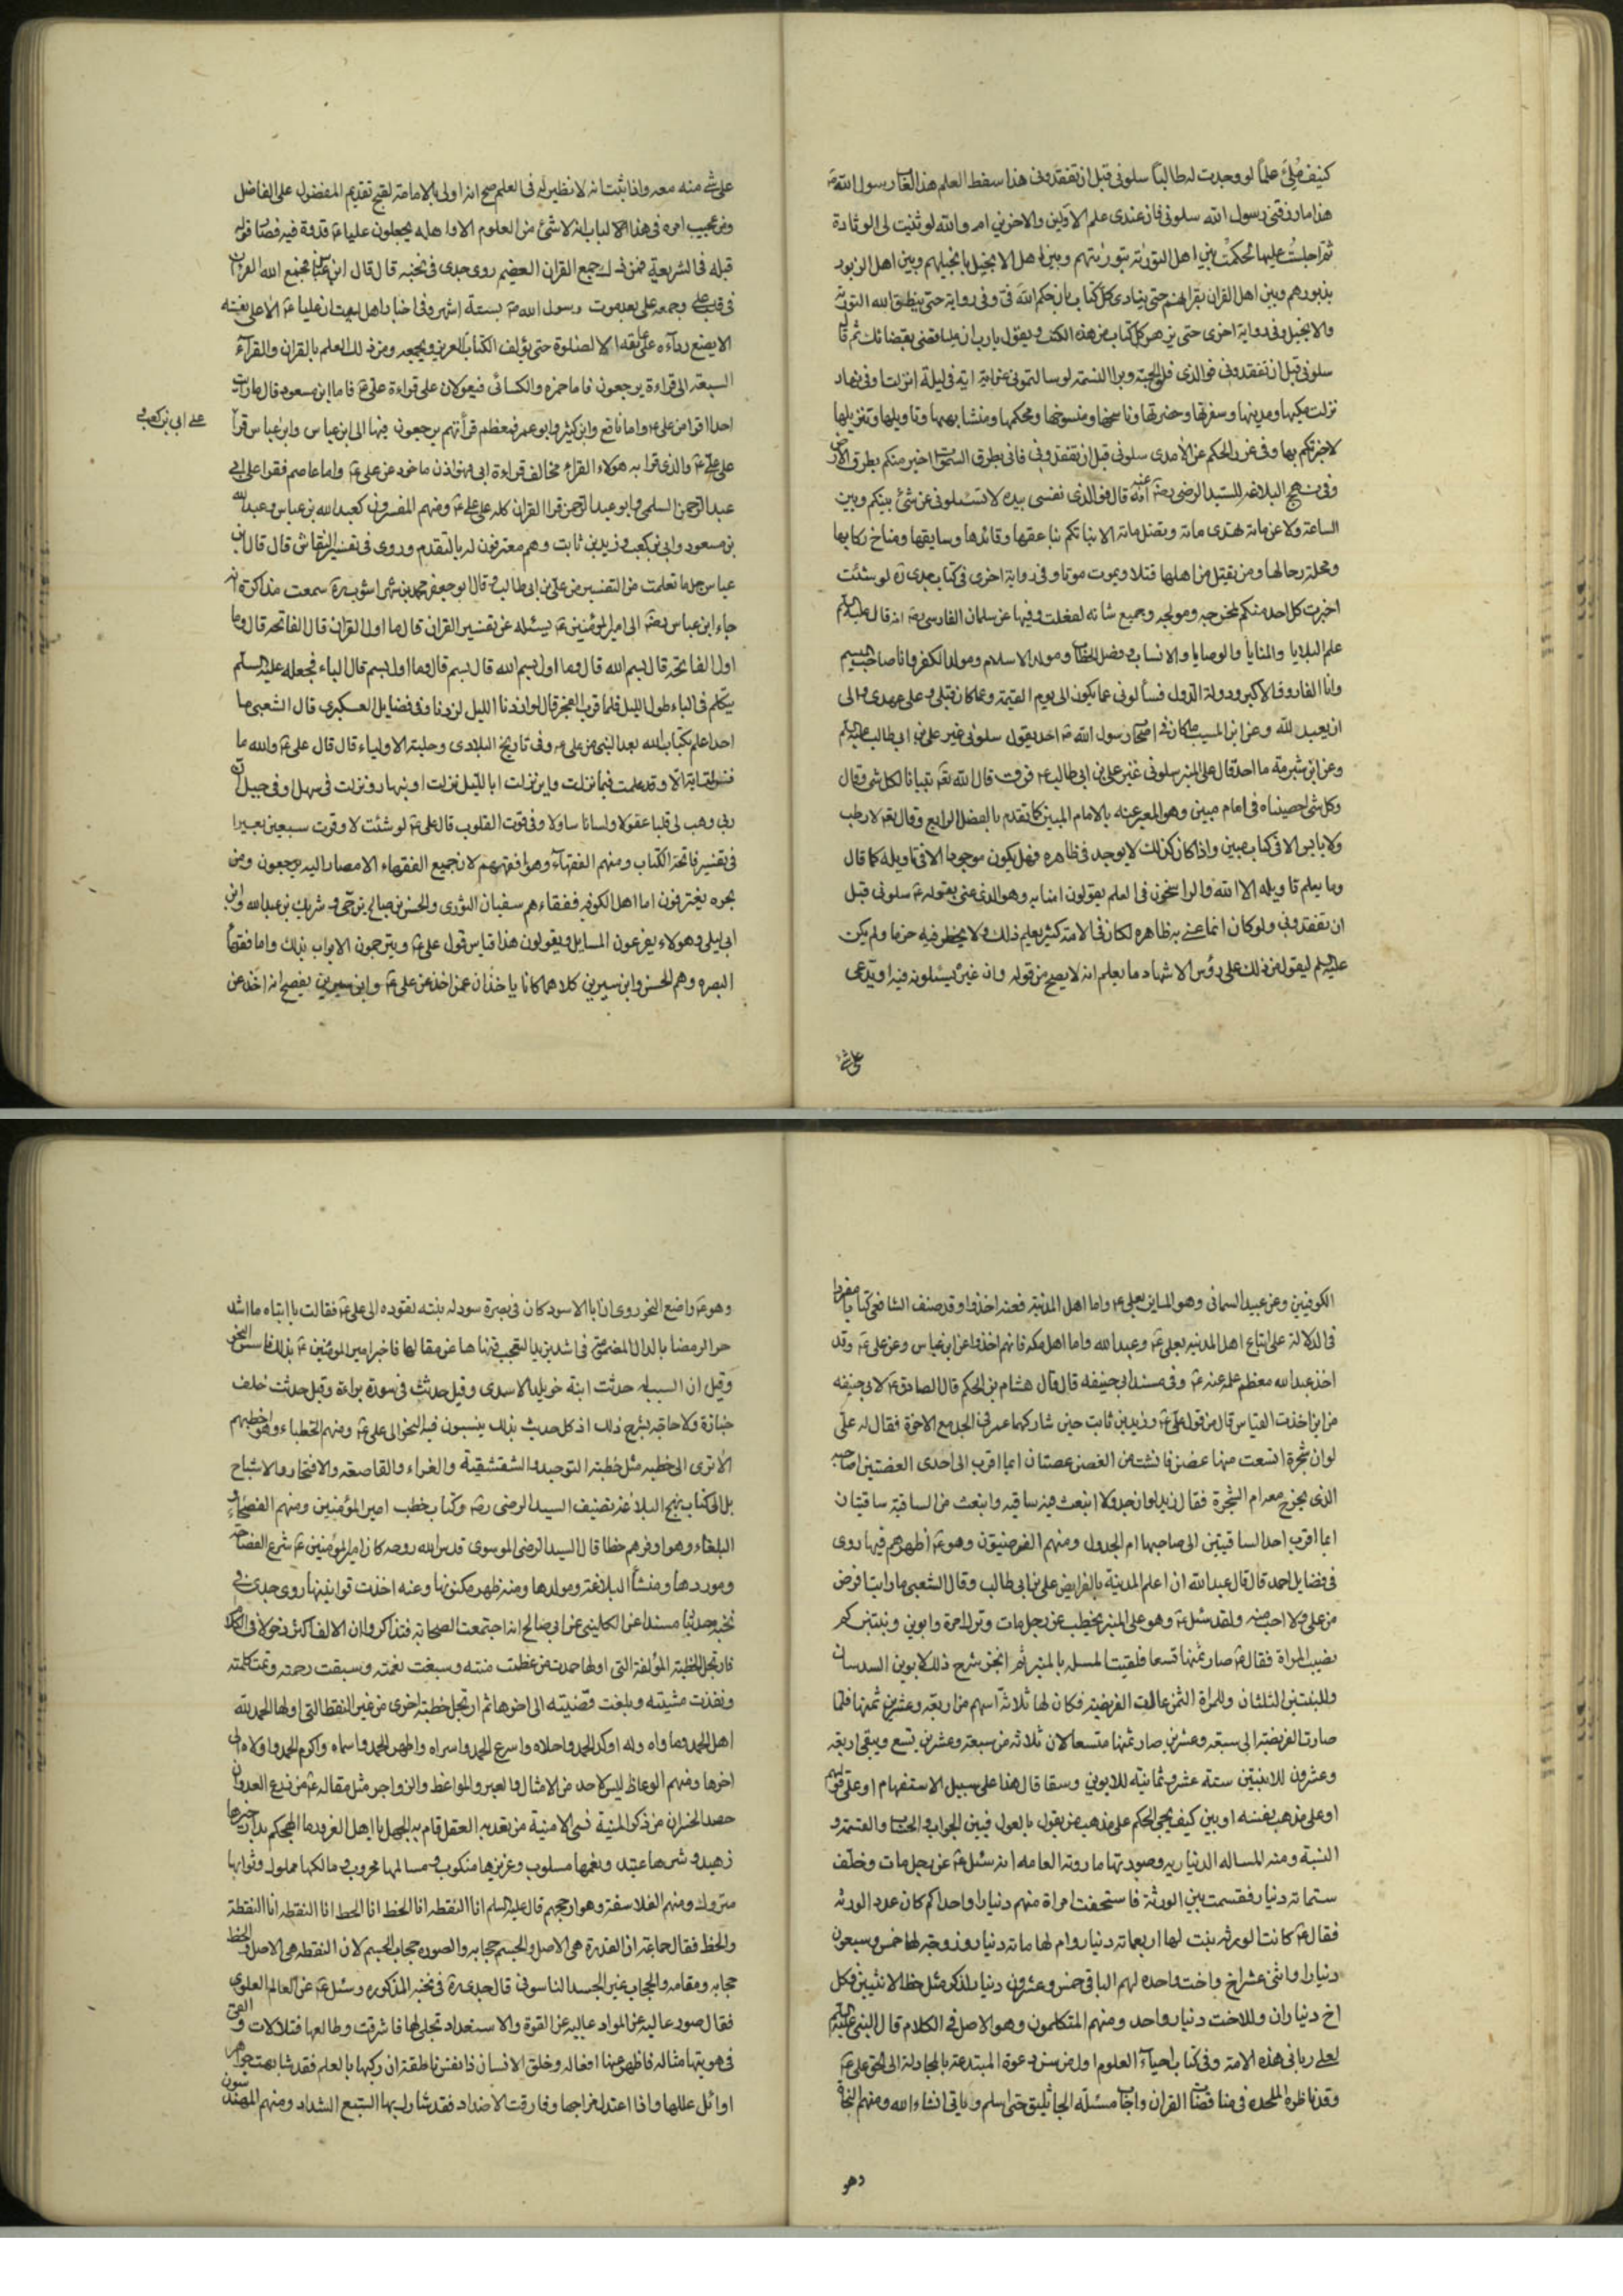 كنيف ملئ علماً لو وجدت له طالباً سلونى قبل ان تفقدونى هذا سفط العلم هذا لعاب رسول الله ص
هذا ما زقنى رسول الله سلونى فان عندى علم الاولين والاخرين اما والله لو ثنيت لى الوسادة
ثم اجلست عليها لحكمت بين اهل التورية بتوريتهم وبين اهل الانجيل بانجيلهم وبين اهل الزبور
بزبورهم وبين اهل القران بقرانهم حتى ينادى كل كتاب بان حكم الله فى وفى رواية حتى ينطق الله التورية
والانجيل وفى رواية اخرى حتى يزهر كل كتاب من هذه الكتب ويقول يا رب ان عليا قضى بقضائك ثم قال
سلونى قبل ان تفقدونى فوالذى فلق الحبة وبرا النسمة لو سالتمونى عن اية اية فى ليلة انزلت او فى نهار
نزلت مكيها ومدنيها وسفرها وحضرها وناسخها ومنسوخها ومحكمها ومتشابهها وتاويلها وتنزيلها
لاخبرتكم بها وفى غرر الحكم عن الامدى سلونى قبل ان تفقدونى فانى بطرق السموات اخبر منكم بطرق الارض
وفى نهج البلاغه للسيد الرضى رضي الله عنه انه قال فوالذى نفسى بيده لا تسئلونى عن شئ بينكم وبين
الساعة ولا عن مائة تهدى مائة وتضل مائة الا نباتكم بناعقها وقائدها وسايقها ومناخ ركابها
ومحلة رحالها ومن يقتل من اهلها قتلا ويموت موتا وفى رواية اخرى فى كتاب جدى ره لو شئت
اخبرت كل احد منكم لمخرجه ومولجه وجميع شانه لفعلت وفيها عن سلمان الفارسى رضه انه قال عليه السلم
علم البلايا والمنايا والوصايا والانساب وفصل الخطاب ومولد الاسلام ومولد الكفر وانا صاحب الميسم
وانا الفاروق الاكبر ودولة الدول فسألونى عما يكون الى يوم القيمة وعما كان قبلى وعلى عهدى والى
ان يعبد الله وعن ابن المسيب ما كان فى اصحاب رسول الله ص احد يقول سلونى غير على بن ابى طالب عليه السلم
وعن ابن شبرمة ما احد قال على المنبر سلونى غير على بن ابى طالب ع فوق قال الله تع تبيانا لكل شى وقال
وكل شى احصيناه فى امام مبين وهو المعبر عنه بالامام المبين كما تقدم بالفصل الرابع وقال تع لا رطب
ولا يابس الا فى كتاب مبين واذا كان كذلك لا يوجد فى ظاهره فهل يكون موجودا الا فى تاويله كما قال
وما يعلم تاويله الا الله والراسخون فى العلم يقولون امنا به وهو الذى عنى بقوله ع سلونى قبل
ان تفقدونى ولو كان انما عنى به ظاهره لكان فى الامة كثير يعلم ذلك ولا يخطى فيه حرفا ولم يكن
عليه السلم ليقول من ذلك على رؤس الاشهاد ما يعلم انه لا يصح من قوله وان غيره يسئلونه فيه او يدعى
على شئ
على شئ منه معه واذا ثبت انه لا نظير له فى العلم صح انه اولى بالامامة لقبح تقديم المفضول على الفاضل
ومن عجيب امره فى هذا الباب انه لا شئ من العلوم الا واهله يجعلون عليا ع قدوة فيه فصار قوله
قبلة فى الشريعة فمن ذلك جميع القران العظيم روى جدى فى نخبه قال قال ابن عباس فجمع الله القران
فى قلب على وجمعه على بعد موت رسول الله ص بستة اشهر وفى اخبار اهل البيت ان عليا ع الا على نفسه
الا يضع رداءه على عاتقه الا لصلوة حتى يؤلف الكتاب العزيز ويجمعه ومن ذلك العلم بالقران والقرآء
السبعة الى قراءة يرجعون فاما حمزه والكسائى فيعولان على قراءة على ع فاما ابن مسعود قال ما رايت
احدا اقرا من على ع واما نافع وابن كثير وابو عمر فمعظم قرأتهم يرجعون فيها الى ابن عباس وابن عباس قرأ
على ابى بن كعب و
على على ع والذى قرا به هولاء القراء مخالف قراءة ابى فهو اذن ماخوذ عن على ع واما عاصم فقرا على ابى
عبد الرحمن السلمى وابو عبد الرحمن قرا القران كله على على ع ومنهم المفسرون كعبد الله بن عباس وعبد الله
بن مسعود وابى بن كعب وزيد بن ثابت وهم معترفون له بالتقدم وروى فى تفسير النقاش قال قال ابن
عباس جل ما تعلمت من التفسير من على بن ابى طالب قال ابو جعفر محمد بن شهراشوب ره سمعت مذاكرة انه
جاء ابن عباس رضه الى امير المؤمنين ع يسئله عن تفسير القران قال ما اول القران قال الفاتحه قال وما
اول الفاتحه قال بسم الله قال وما اول بسم الله قال بسم قال وما اول بسم قال الباء فجعله عليه السلم
يتكلم فى الباء طول الليل فلما قرب الفجر قال لو زادنا الليل لزدنا وفى فضايل العسكرى قال الشعبى ما
احد اعلم بكتاب الله بعد النبى من على ع وفى تاريخ البلادى وحلية الاولياء قال قال على ع والله ما
نزلت اية الا وقد علمت فيما نزلت واين نزلت ابالليل نزلت او بنهار ونزلت فى سهل او فى جبل ان
ربى وهب لى قلبا عقولا ولسانا ساولا وفى قوت القلوب قال على ع لو شئت لاوقرت سبعين بعيرا
فى تفسير فاتحة الكتاب ومنهم الفقهآء وهو افقههم لان جميع الفقهاء الامصار اليه يرجعون ومن
بحره يغترفون اما اهل الكوفه ففقاءهم سفيان الثورى والحسن بن صالح بن حى وشريك بن عبد الله وابن
ابى ليلى وهولاء يفرعون المسايل ويقولون هذا قياس قول على ع ويترجمون الابواب بذلك واما فقهاء
البصره وهم الحسن وابن سيرين كلاهما كانا ياخذان عمن اخذ عن على ع وابن سيرين يفصح انه اخذ عن
الكوفيين وعن عبيد السمانى وهو المساين بعلى ع واما اهل المدنية فعنه اخذوا وقد صنف الشافعى كتابا مفردا
فى الدلالة على اتباع اهل المدنيه بعلى ع وعبد الله واما اهل مكه فانهم اخذوا عن ابن عباس وعن على ع وقد
اخذ عبد الله معظم علمه عنه ع وفى مسند ابى حنيفه قال قال هشام بن الحكم قال الصادق ع لابى حنيفه
من اين اخذت القياس قال من قول على ع وزيد بن ثابت حين شاركهما عمر فى الجد مع الاخوة فقال له على
لو ان شجرة انشعت منها غصن فانشت من الغصن غصنان ايما اقرب الى احدى الغصنين اصاحبه
الذى يخرج معه ام الشجرة فقال زيد لو ان جدولا انبعث منه ساقيه وانبعث من الساقية ساقيتان
ايما اقرب احد الساقيتين الى صاحبها ام الجدول ومنهم الفرضيون وهو ع اظهرهم فيها روى
فى فضايل احمد قال قال عبد الله ان اعلم المدينة بالفرايض على بن ابى طالب وقال الشعبى ما رايت افرض
من على ولا احسب منه ولقد سئل ع وهو على المنبر يخطب عن رجل مات وترك امرة وابوين وبنتين كم
نصيب المراة فقال ع صار ثمنها تسعا فلقبت المسله بالمنبريه انجز شرح ذلك لابوين السدسان
وللبنتين الثلثان وللمراة الثمن عالت الفريضة فكان لها ثلاثة اسهم من اربعة وعشرين ثمنها فلما
صارت الفريضة الى سبعة وعشرين صار ثمنها متسعا لان ثلاثه من سبعة وعشرين تسع ويبقى اربعة
وعشرون للابنتين ستة عشر وثمانية للابوين وسقا قال هذا على سبيل الاستفهام او على قولهم
او على مذهب نفسه او بين كيف يجى الحكم على مذهب من يقول بالعول فيبين الجواب والحساب والقسمة و
النسبة ومنه المساله الدنياريه وصورتها ما روته العامه انه سئل ع عن رجل مات وخلف
ستمائة دنيار فقسمت بين الورثة فاستحقت امراة منهم دنيارا واحدا كم كان عدد الورثه
فقال ع كانت الورثه بنت لها اربعمائه دنيار وام لها مائة دنيار وزوجة لها خمس وسبعون
دنيارا واثنى عشر اخ واخت واحده لهم الباقى خمس وعشرون دنيار للذكر مثل حظ الانثيين فكل
اخ دنياران وللاخت دنيار واحد ومنهم المتكلمون وهو الاصل فى الكلام قال النبى عليه السلم
لعلى ربانى هذه الامة وفى كتاب احياء العلوم اول من سن دعوة المبتدعة بالمجادلة الى الحق على ع
وقد ناظره الملحده فى مناقضات القران واجاب مسئلة الجاثليق حتى اسلم وياتى انشاء الله ومنهم النحاة
وهو
وهو ع واضع النحو روى ان ابا الاسود كان فى بصرة سود له بنته تقوده الى على ع فقالت يا ابتاه ما اشد
حر الرمضا بالدال المضمومة فى اشد يريد التعجب فنهاها عن مقالها فاخبر امير المؤمنين ع بذلك فاسس النحو
وقيل ان السبب انه حدثت ابنة خويلد الاسدى وقيل حدثت فى سورة براءة وقيل حدثت خلف
جنازة ولا حاجه بشرح ذلك اذ كل حديث بذلك ينسبون فيه النحو الى على ع ومنهم الخطباء وهو اخطبهم
الا ترى الى خطبه مثل خطبة التوحيد والشقشقية والغراء والقاصعه والافتخار والاشباح
بل الى كتاب نهج البلاغة تصنيف السيد الرضى رضه وكتاب خطب امير المؤمنين ومنهم الفصحاء و
البلغاء وهو اوفرهم حظا قال السيد الرضى الموسوى قدس الله روحه كان امير المؤمنين ع شرع الفصاحة
وموردها ومنشأ البلاغة ومولدها ومنه ظهر مكنونها وعنه اخذت قوانينها روى جدى فى
نخبه حديثا مسندا عن الكلينى عن ابى صالح انه اجتمعت الصحابه فتذاكروا ان الالف اكثر دخولا فى الكلام
فارتجل الخطبة المؤلفة التى اولها حمدت من عظمت منته وسبغت نعمته وسبقت رحمته وتمت كلمته
ونفذت مشيته وبلغت قضيته الى اخرها ثم ارتجل خطبة اخرى من غير النقط التى اولها الحمد لله
اهل الحمد وماواه وله اوكد الحمد واحلاه واسرع الحمد واسراه واطهر الحمد واسماه واكرم الحمد واولاه الى
اخرها ومنهم الوعاظ ليس لاحد من الامثال والعبر والمواعظ والزواجر مثل مقاله ع من زرع العدوان
حصد الخسران من ذكر المنية نسى الامنية من قعد به العقل قام به الجهل يا اهل الغرور ما الهجكم بدار خيرها
زهيد وشرها عتيد ونعمها مسلوب وعزيزها منكوب ومسالمها محروب ومالكها مملوك وثراثها
متروك ومنهم الفلاسفة وهو ارجحهم قال عليه السلم انا النقطه انا الخط انا الخط انا النقطه انا النقطة
والخط فقال جماعة ان القدرة هى الاصل والجسم حجابه والصوره حجاب الجسم لان النقطه هى الاصل والخط
حجابه ومقامه والحجاب غير الجسد الناسوتى قال جدى ره فى نخبه المذكوره وسئل ع عن العالم العلوى
فقال صور عاليه عن المواد عاليه عن القوة والاستعداد تجلى لها فاشرقت وطالعها فتلالات والقى
فى هويتها مثاله فاظهر عنها افعاله وخلق الانسان ذا نفس ناطقة ان زكيها بالعلم فقد شابهت جواهر
اوائل عللها واذا اعتدل مزاجها وفارقت الاضداد فقد شارك بها السبع الشداد ومنهم المهندسون